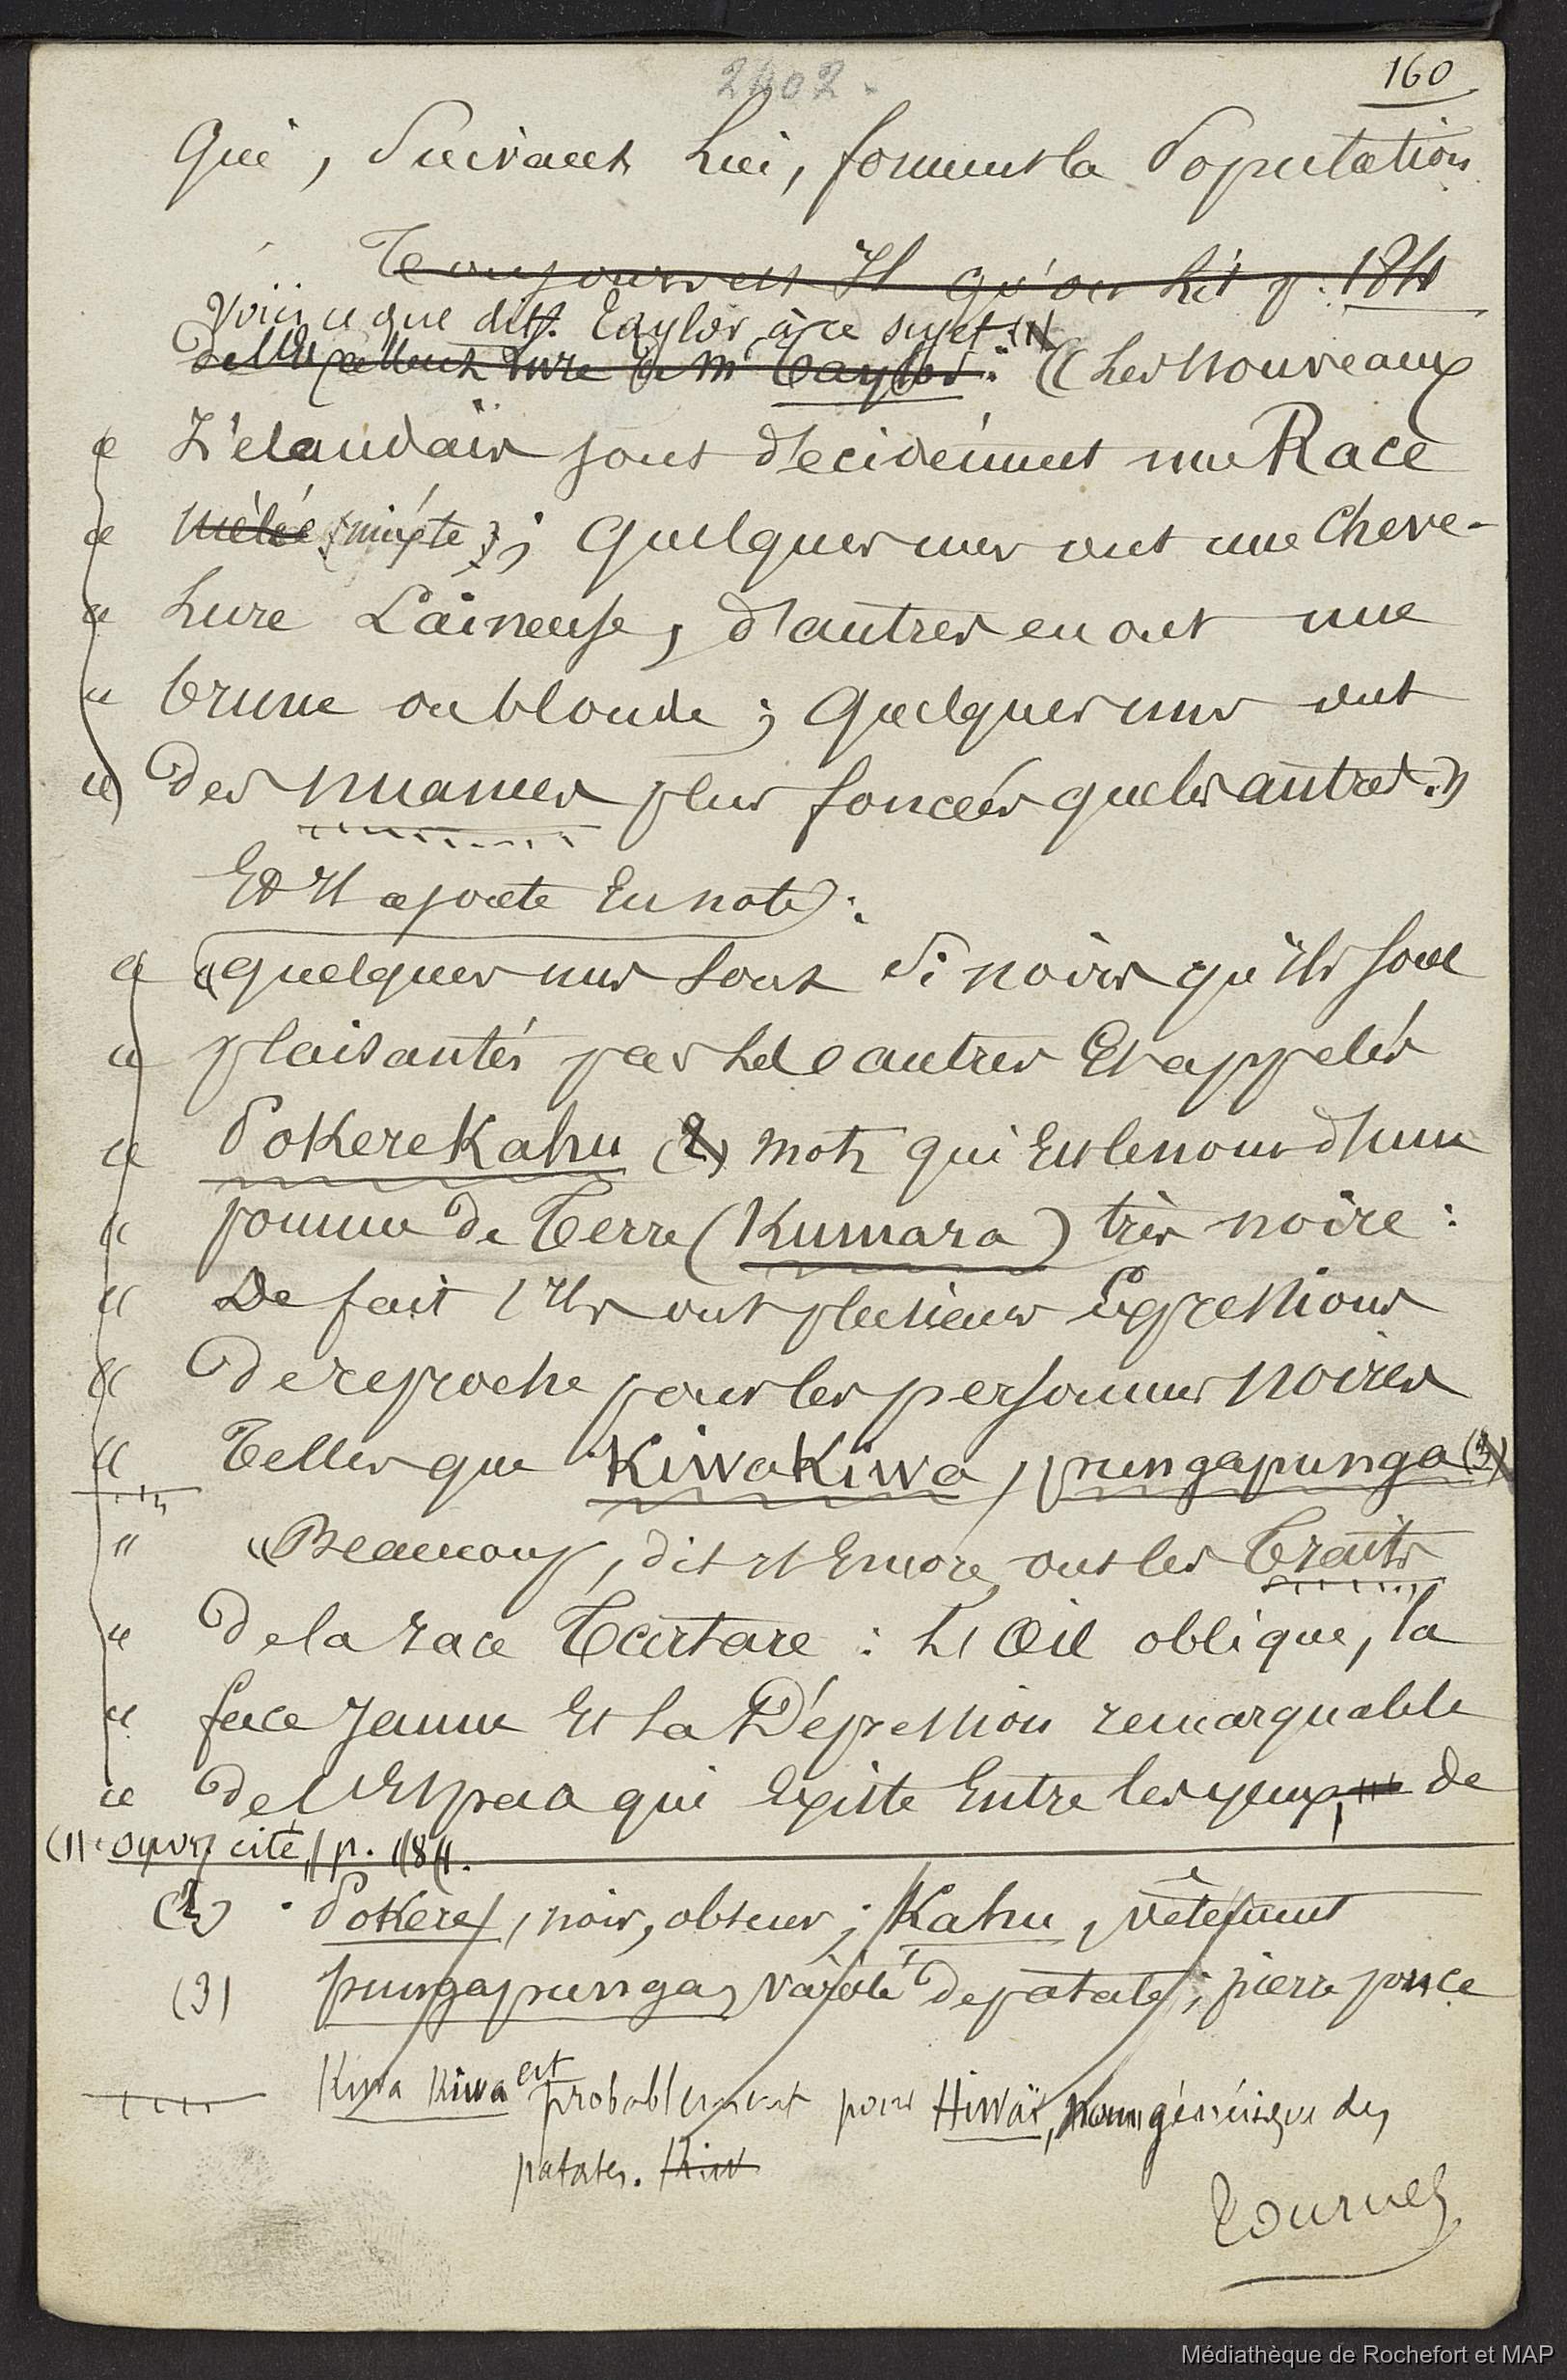 2402.
160
qui, suivant lui, forment la population
Toujours est il qu'on lit p. 184
Voici ce que dit Taylor, à ce sujet (1)
de l'Excellent livre de Mr Taylor : « les nouveaux
« Zélandais sont décidément une Race
« mêlée (mixte) ; quelques uns ont une cheve-
« lure laineuse, d'autres en ont une
« brune ou blonde ; quelques uns ont
« des nuances plus foncées que les autres. »
Et il ajoute en note :
« « quelques uns sont si noirs qu'ils sont
« plaisantés par les autres et appelés
« Pokerekahu (2) mot qui est le nom d'une
« pomme de terre (Kumara) très noire :
« De fait ils ont plusieurs expressions
« de reproche pour les personnes noires
« telles que Kiwakiwa, pungapunga (3)
" « Beaucoup, dit il encore, ont les traits
« de la race Tartare : l'œil oblique, la
« face jaune et la Dépression remarquable
« de l'Espace qui existe entre les yeux, de
(1) ouvr. cité, p. 184.
(2) Pokere, noir, obscur ; Kahu, vêtement
(3) pungapunga, variété de patate ; pierre ponce
Kiwa Kiwa est probablement pour Hiwaï, nom générique des
patates. Kiw
Tournez
Médiathèque de Rochefort et MAP